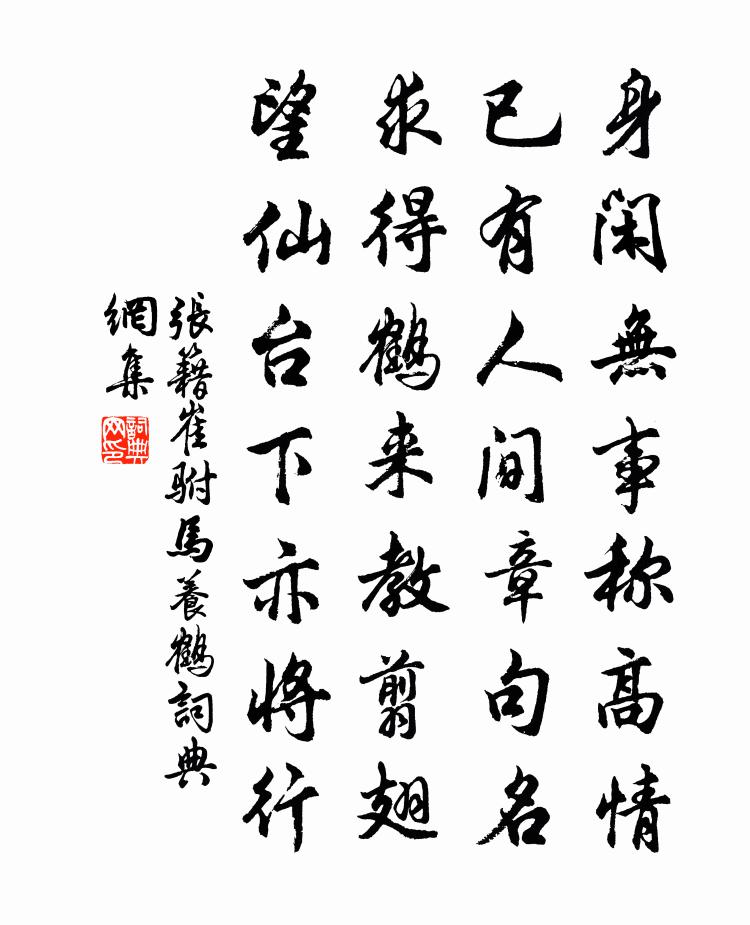 身闲無事称高情
已有人间章句名
求得鹤来教剪翅
望仙台下亦将行
張籍崔駙馬養鶴詞典
網集
詞典
网印